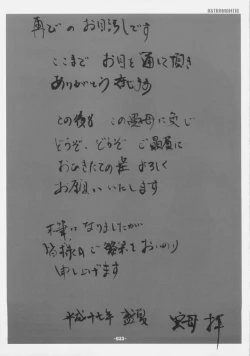 ASTROMANTIC
再びの お目汚しです
ここまで お目を通して頂き
ありがとう
この
どうぞ、どうぞ ご贔屓に
おひきたての 程 よろしく
お願いいたします
末筆になりましたが
皆様の ご繁栄を お祈り
申し上げます
平成十七年 盛夏 拝
-033-